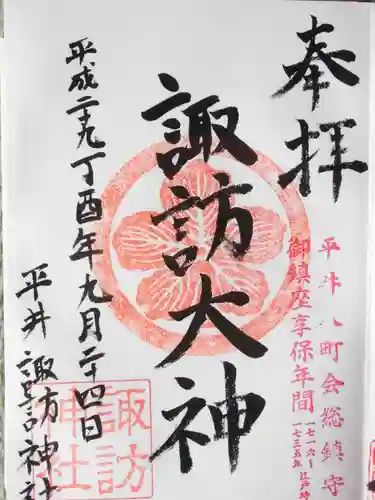 奉拝
平井八町会総鎮守
御鎮座享保年間
一七一六〜
一七三五年 江戸時
諏訪大神
平成二十九丁酉年九月二十四日
平井 諏訪神社
諏訪
神社